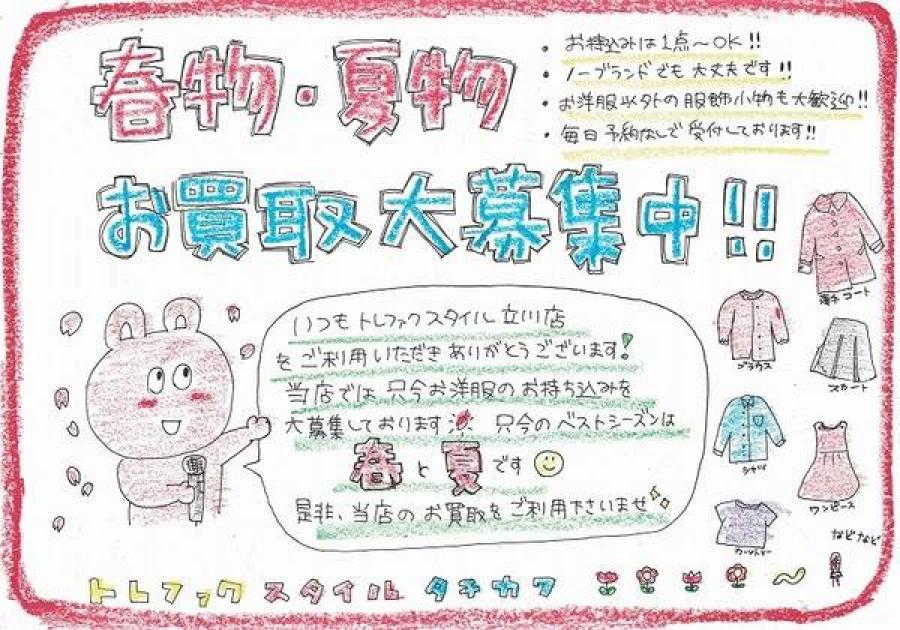 春物・夏物
・お持込みは1点〜OK!!
・ノーブランドでも大丈夫です!!
・お洋服以外の服飾小物も大歓迎!!
・毎日予約なしで受付しております!!
お買取大募集中!!
いつもトレファクスタイル立川店
をご利用いただきありがとうございます!
当店では只今お洋服のお持ち込みを
大募集しております 只今のベストシーズンは
春と夏です
是非、当店のお買取をご利用下さいませ
薄手コート
ブラウス
スカート
シャツ
ワンピース
などなど
トレファックスタイルタチカワ